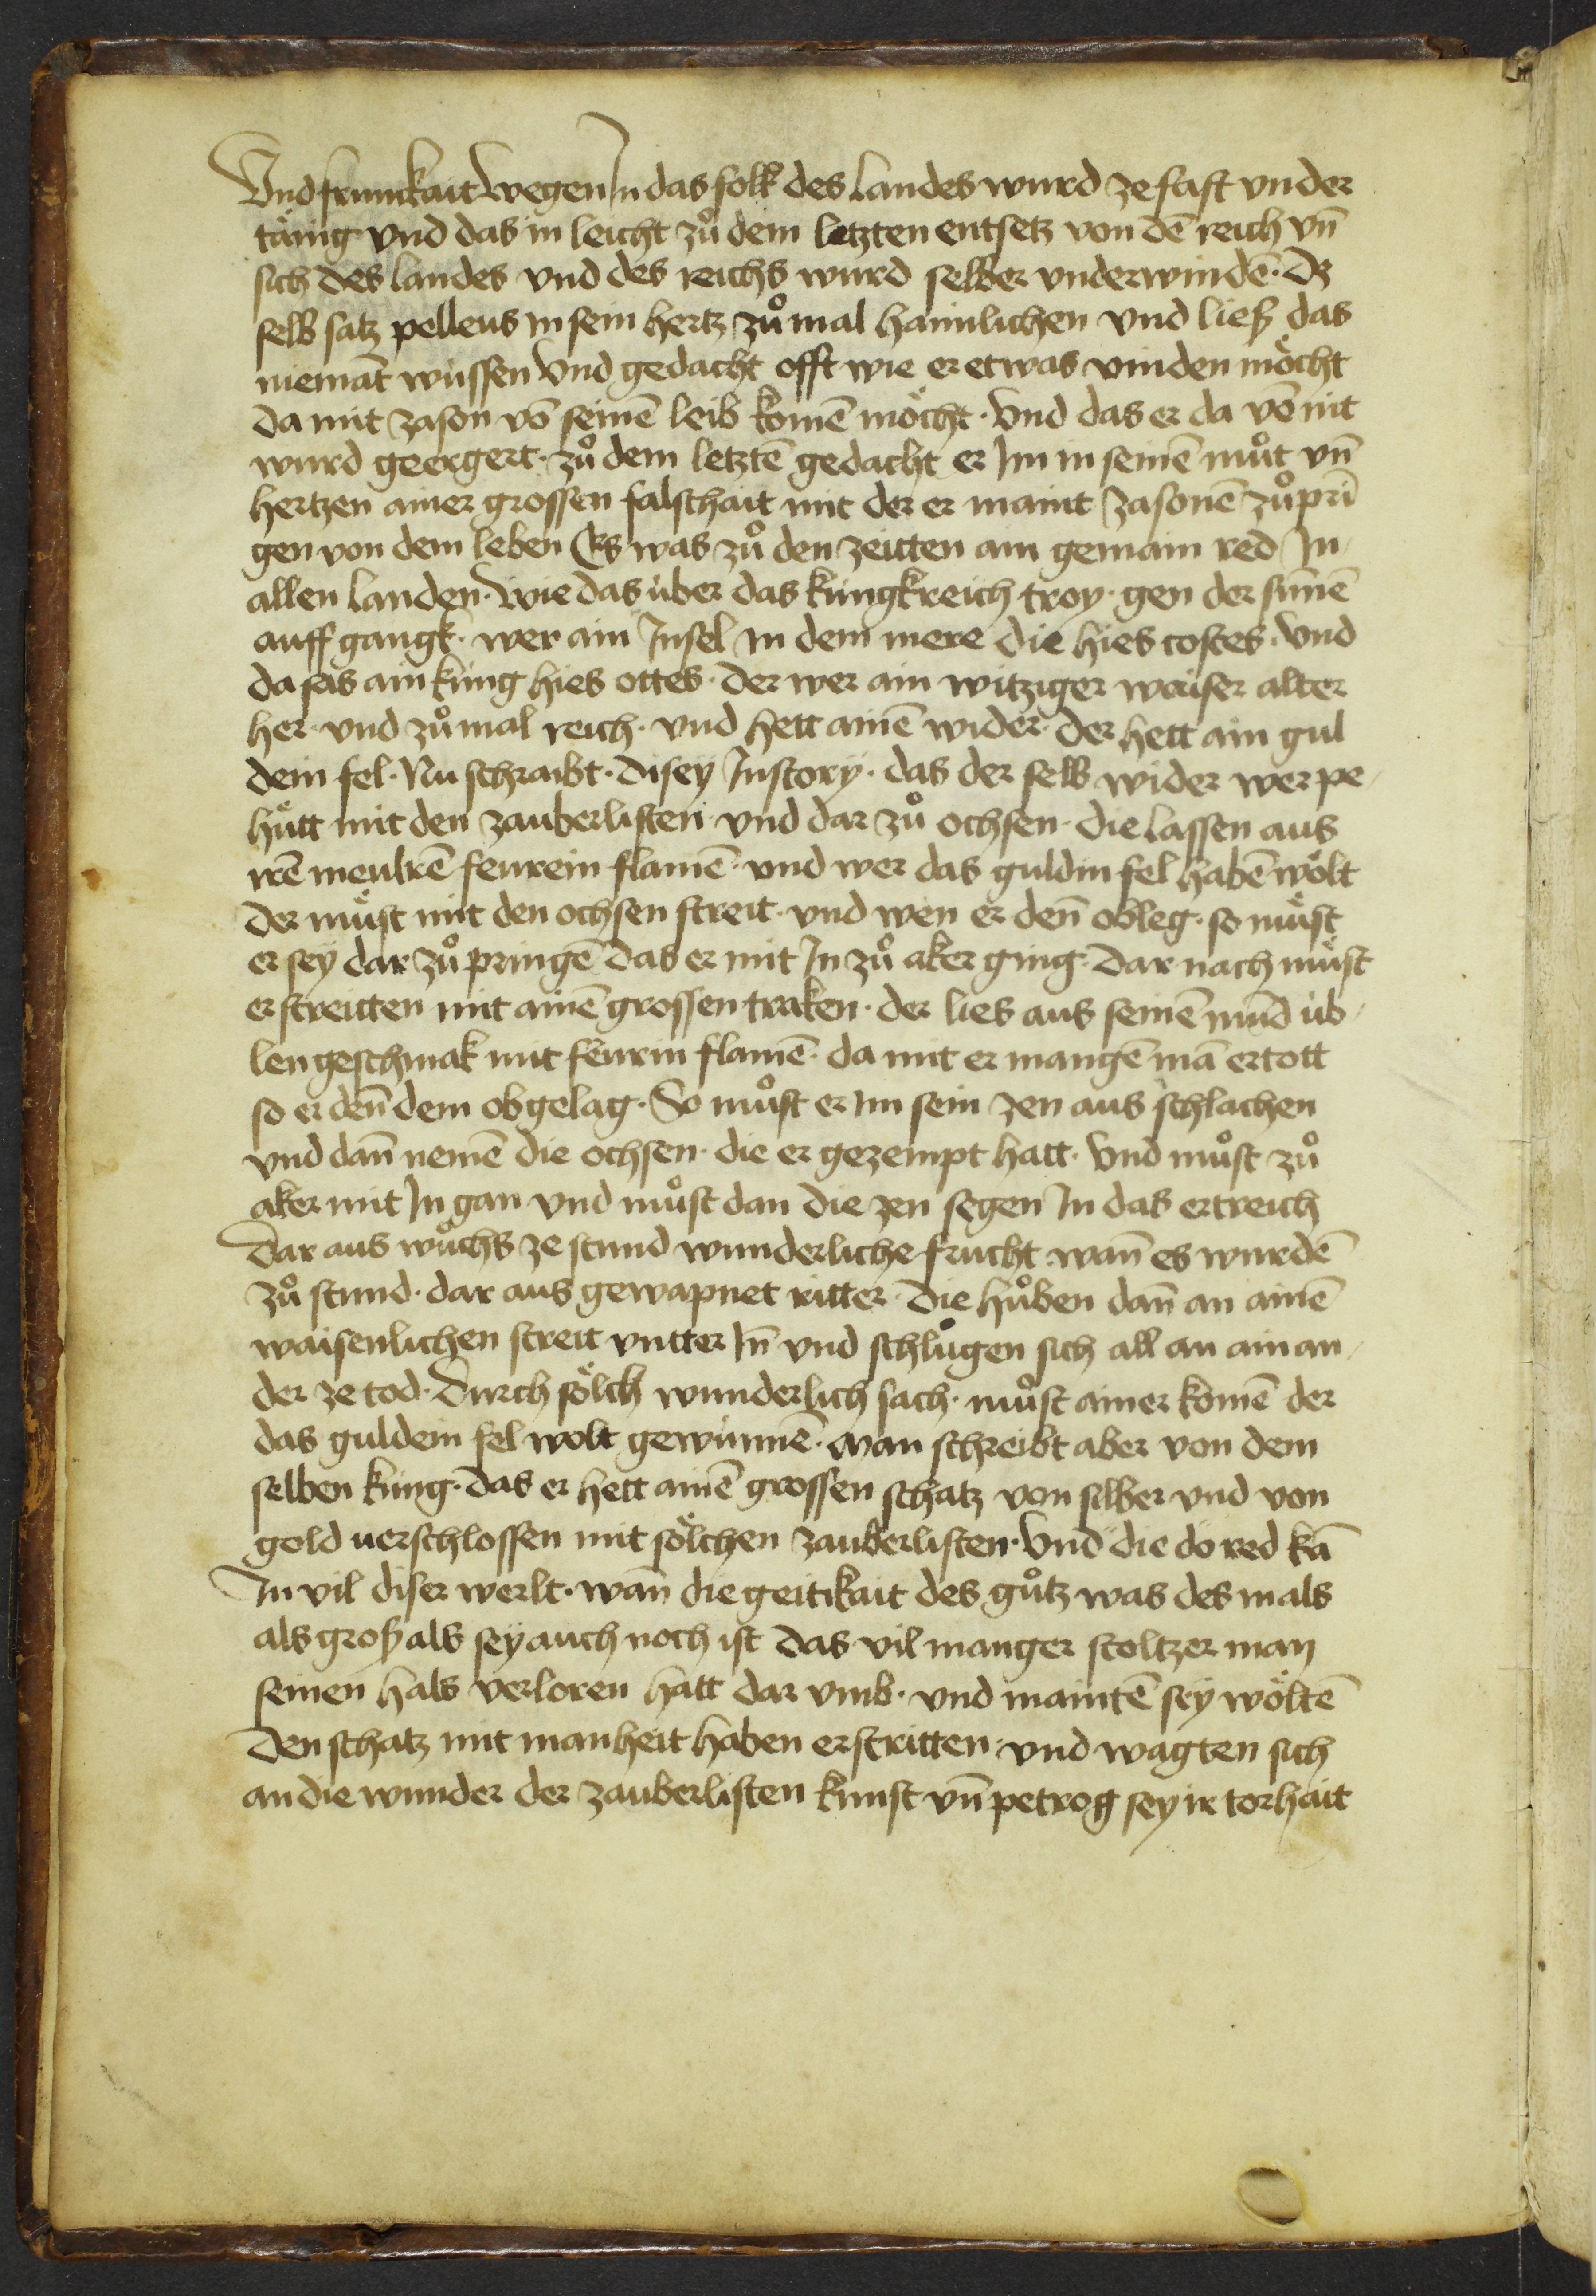 Vnd frumkait wegen In das folk des Landes wurd ze fast vnder
tänig vnd das in leicht zů dem letzten entsetz von dē reich vn̄
sich des landes vnd des reichs wurd selber vnderwindē· Dz
selb satz pelleus in sein hertz zů mal haimlichen vnd liesz das
niemāt wissen Vnd gedacht offt wie er etwas vinden möcht
da mit Jason vō seinē leib komē möcht· Vnd das er da vō nit
wurd geergert· zů dem letztē gedacht er Im in seinē můt vn̄
hertzen ainer grossen falschait mit der er maint Jasonē zů prī
gen von dem leben Es was zů den zeitten ain gemain red In
allen landen· wie das über das küngkreich troy· gen der sunnē
auff gangk· wer ain Insel in dem mere die hies coſtes· Vnd
da sas ain küng hies ottes· der wer ain witziger weiser alter
her· vnd zů mal reich· vnd hett ainē wider· der hett ain gul
dein fel· Nu schraibt· disey Instory· das der selb wider wer pe
hütt mit den zauberlisten vnd dar zů ochsen· die lassen aus
irē meulrē feurein flamē· vnd wer das guldin fel habē wölt
der müst mit den ochsen streit· vnd wen er den̄ obleg· so müst
er sey dar zů pringē das er mit In zů aker ging· dar nach müst
er streitten mit ainē grossen traken· der lies aus seinē mund üb
len geschmak mit feurin flamē· da mit er mangē mā ertott
so er den̄ dem obgelag· So můst er Im sein zen aus schlachen
vnd dan̄ nemē die ochsen· die er gezempt hatt· Vnd můst zů
aker mit In gan vnd můst dan die zen segen In das ertreich
Dar aus wůchs ze stund wunderliche frucht wan̄ es wurdē
zů stund· dar aus gewapnet ritter· die hůben dan̄ an ainē
waisenlichen streit vntter In̄ vnd schlůgen sich all an ain an
der ze tod· Durch sölch wunderlich sach· můst ainer komē der
das guldein fel wolt gewinnē· Man schreibt aber von dem
selben küng· das er hett ainē grossen schatz von silber vnd von
gold verschlossen mit sölchen zauberlisten· Vnd die do red kā
In vil diser werlt· wan̄ die geitikait des gůtz was des mals
als grosz als sey auch noch ist das vil manger stoltzer man
seinen hals verloren hatt dar vmb· vnd maintē sey wöltē
den schatz mit manheit haben erstritten· vnd wagten sich
an die wunder der zauberlisten kunst vn̄ petrog sey ir torhait